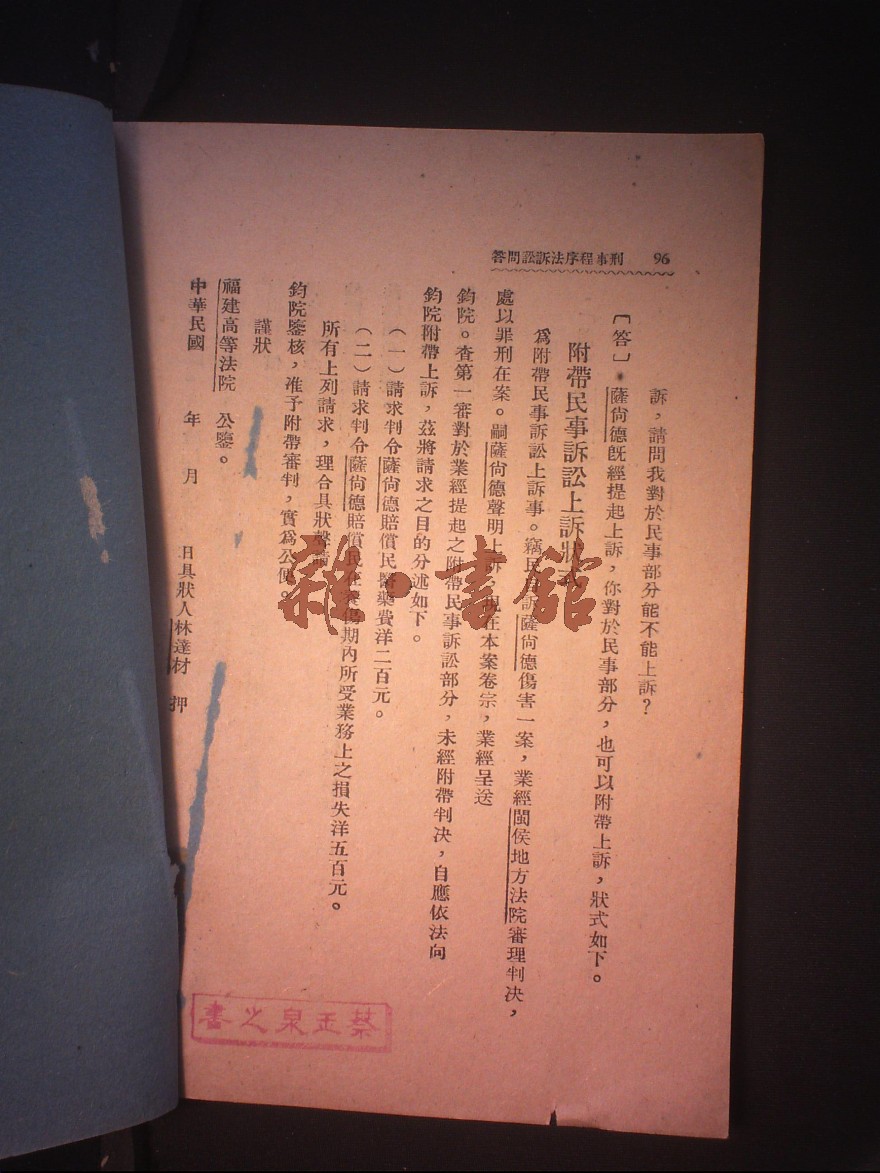 刑事程序法訴訟問答 96
訴，請問我對於民事部分能不能上訴？
〔答〕。薩尙德旣經提起上訴，你對於民事部分，也可以附帶上訴，狀式如下。
附帶民事訴訟上訴狀
爲附帶民事訴訟上訴事。竊民訴薩尙德傷害一案，業經閩侯地方法院審理判决，
處以罪刑在案。嗣薩尙德聲明上訴，現在本案卷宗，業經呈送
鈞院。查第一審對於業經提起之附帶民事訴訟部分，未經附帶判决，自應依法向
鈞院附帶上訴，茲將請求之目的分述如下。
（一）請求判令薩尙德賠償民醫藥費洋二百元。
（二）請求判令薩尙德賠償民在養傷期內所受業務上之損失洋五百元。
所有上列請求，理合具狀聲請
鈞院鑒核，准予附帶審判，實爲公便。
謹狀
福建高等法院 公鑒。
中華民國 年 月 日具狀人林達材 押
蔡玉泉之書
雜·書館